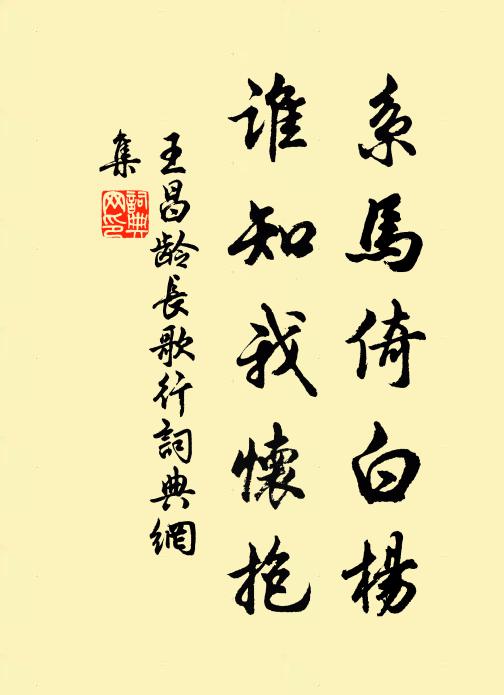 系馬倚白楊
誰知我懷抱
王昌龄長歌行詞典網
集
詞典
网印